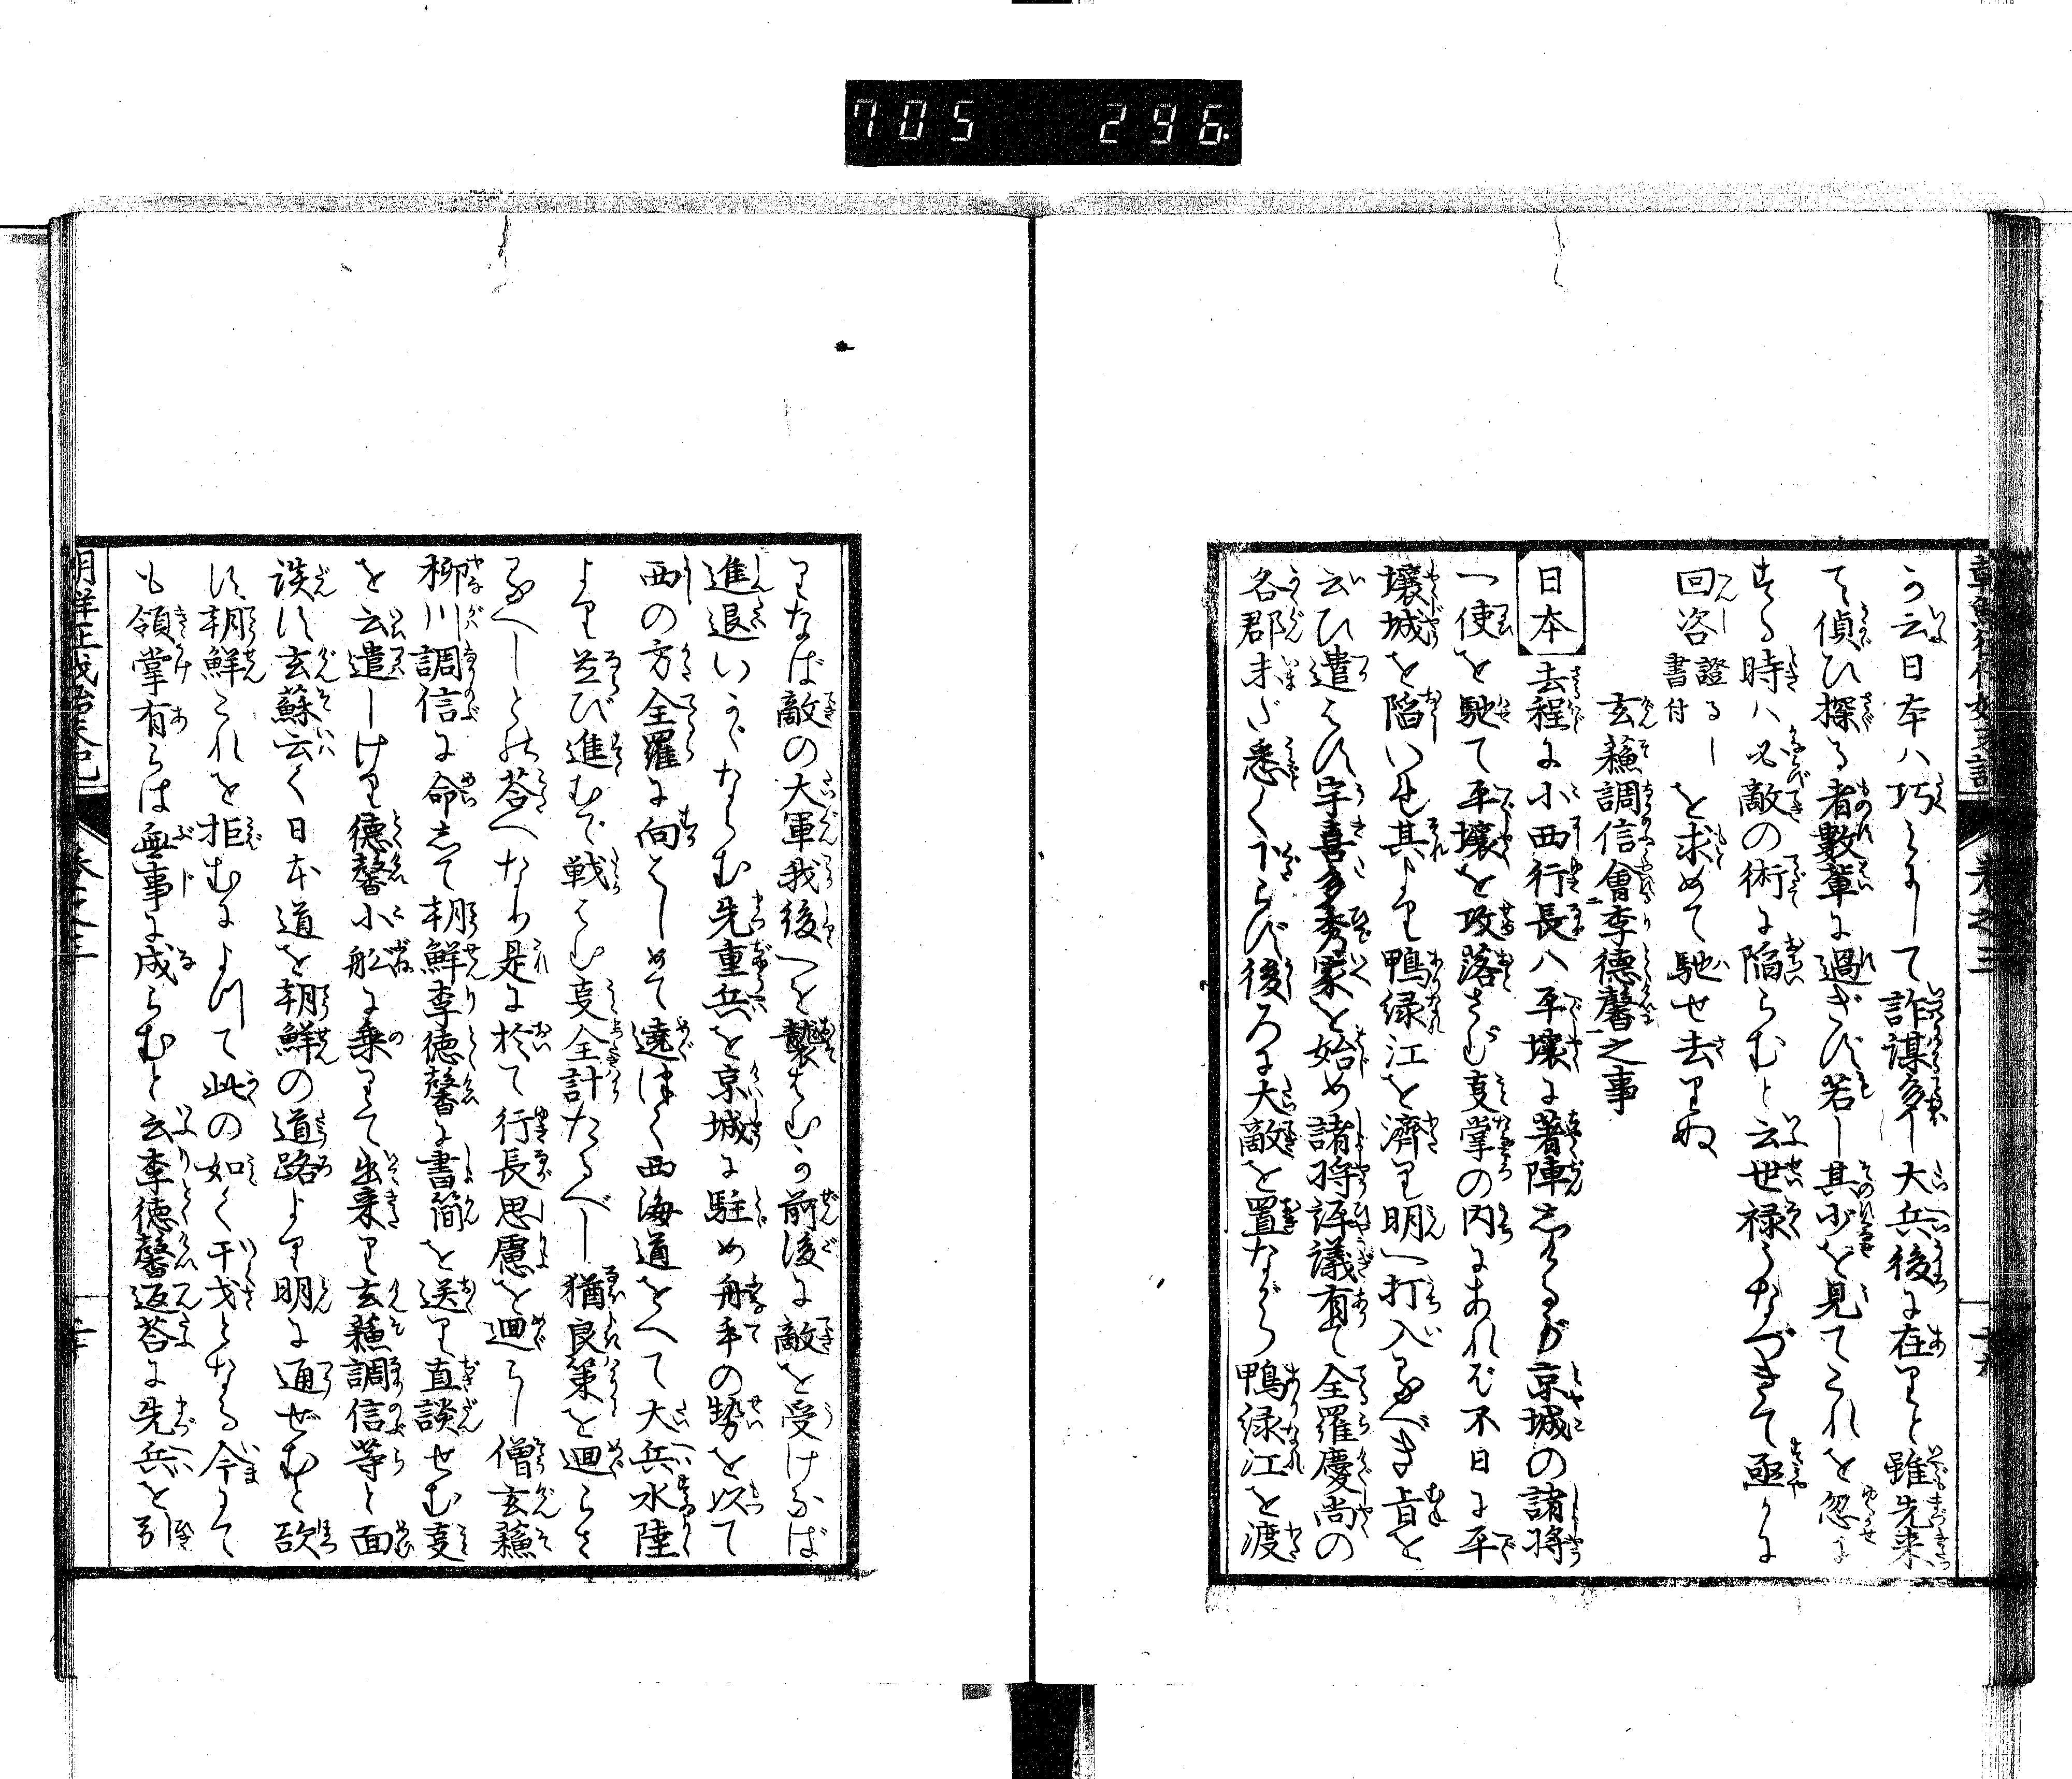 705 296
う云日本ハ巧にして詐謀多し大兵後に在りと雖先来
て偵ひ探る者數輩に過ぎず若し其少を見てこれを忽に
する時ハ必敵の術に陥らむと云世禄うなづきて亟かに
回咨證るし書付を求めて馳せ去りぬ
玄蘓調信會李德馨之事
日本 去程に小西行長ハ平壌に著陣しけるが京城の諸将
一使を馳て平壌を攻落さむ叓掌の内にあれば不日に平
壌城を陥いせ其より鴨緑江を濟り明へ打入るべき旨を
云ひ遣はす宇喜多秀家を始め諸将評議有て全羅慶尚の
各郡未だ悉く下らず後ろに大敵を置ながら鴨緑江を渡
りなば敵の大軍我後へを襲はむか前後に敵を受けなば
進退いかゞならむ先重兵を京城に駐め舟手の勢を以て
西の方全羅に向はしめて遶ほく西海道をへて大兵水陸
より並び進むで戦はむ叓全計たるべし猶良策を廻らさ
るべしとの荅へなり是に於て行長思慮を廻らし僧玄蘓
柳川調信に命して朝鮮李徳馨に書簡を送り直談せむ叓
を云遣しけり徳馨小舩に乗りて出来り玄蘓調信等と面
談す玄蘇云く日本道を朝鮮の道路より明に通ぜむと欲
す朝鮮これを拒むによつて此の如く干戈となる今にて
も領掌有らは無事に成らむと云李徳馨返荅に先兵を引